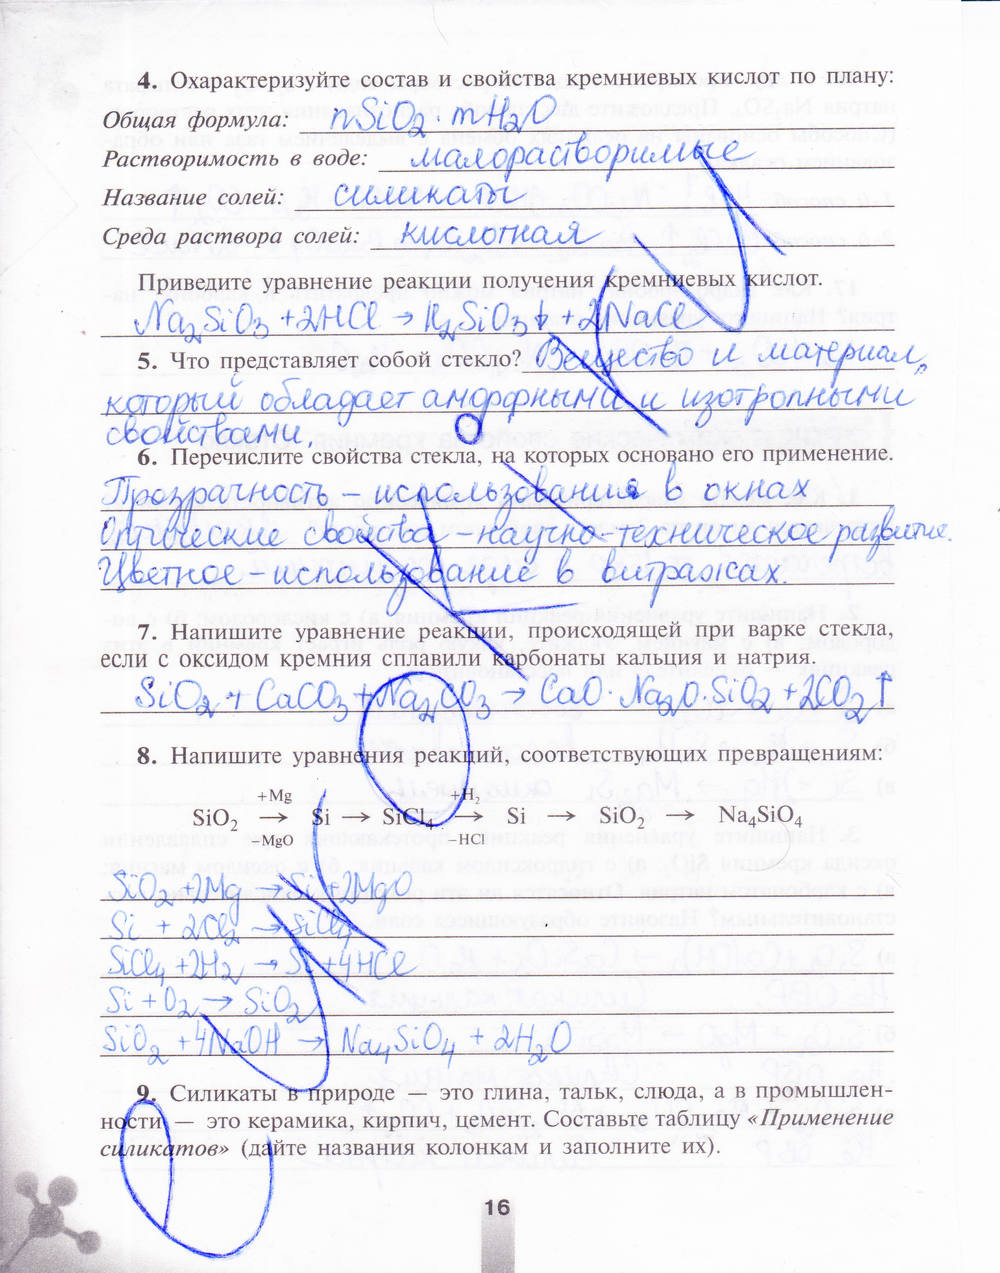 4. Охарактеризуйте состав и свойства кремниевых кислот по плану:
Общая формула: nSiO2 · mH2O
Растворимость в воде: малорастворимые
Название солей: силикаты
Среда раствора солей: кислотная
Приведите уравнение реакции получения кремниевых кислот.
Na2SiO3 + 2HCl → H2SiO3↓ + 2NaCl
5. Что представляет собой стекло? Вещество и материал,
который обладает аморфными и изотропными
свойствами
6. Перечислите свойства стекла, на которых основано его применение.
Прозрачность – использования в окнах
Оптические свойства – научно-техническое развитие.
Цветное – использование в витражах.
7. Напишите уравнение реакции, происходящей при варке стекла,
если с оксидом кремния сплавили карбонаты кальция и натрия.
SiO2 + CaCO3 + Na2CO3 → CaO · Na2O · SiO2 + 2CO2↑
8. Напишите уравнения реакций, соответствующих превращениям:
+Mg +H2
SiO2 → Si → SiCl4 → Si → SiO2 → Na4SiO4
−MgO −HCl
SiO2 + 2Mg → Si + 2MgO
Si + 2Cl2 → SiCl4
SiCl4 + 2H2 → Si + 4HCl
Si + O2 → SiO2
SiO2 + 4NaOH → Na4SiO4 + 2H2O
9. Силикаты в природе — это глина, тальк, слюда, а в промышлен-
ности — это керамика, кирпич, цемент. Составьте таблицу «Применение
силикатов» (дайте названия колонкам и заполните их).
16